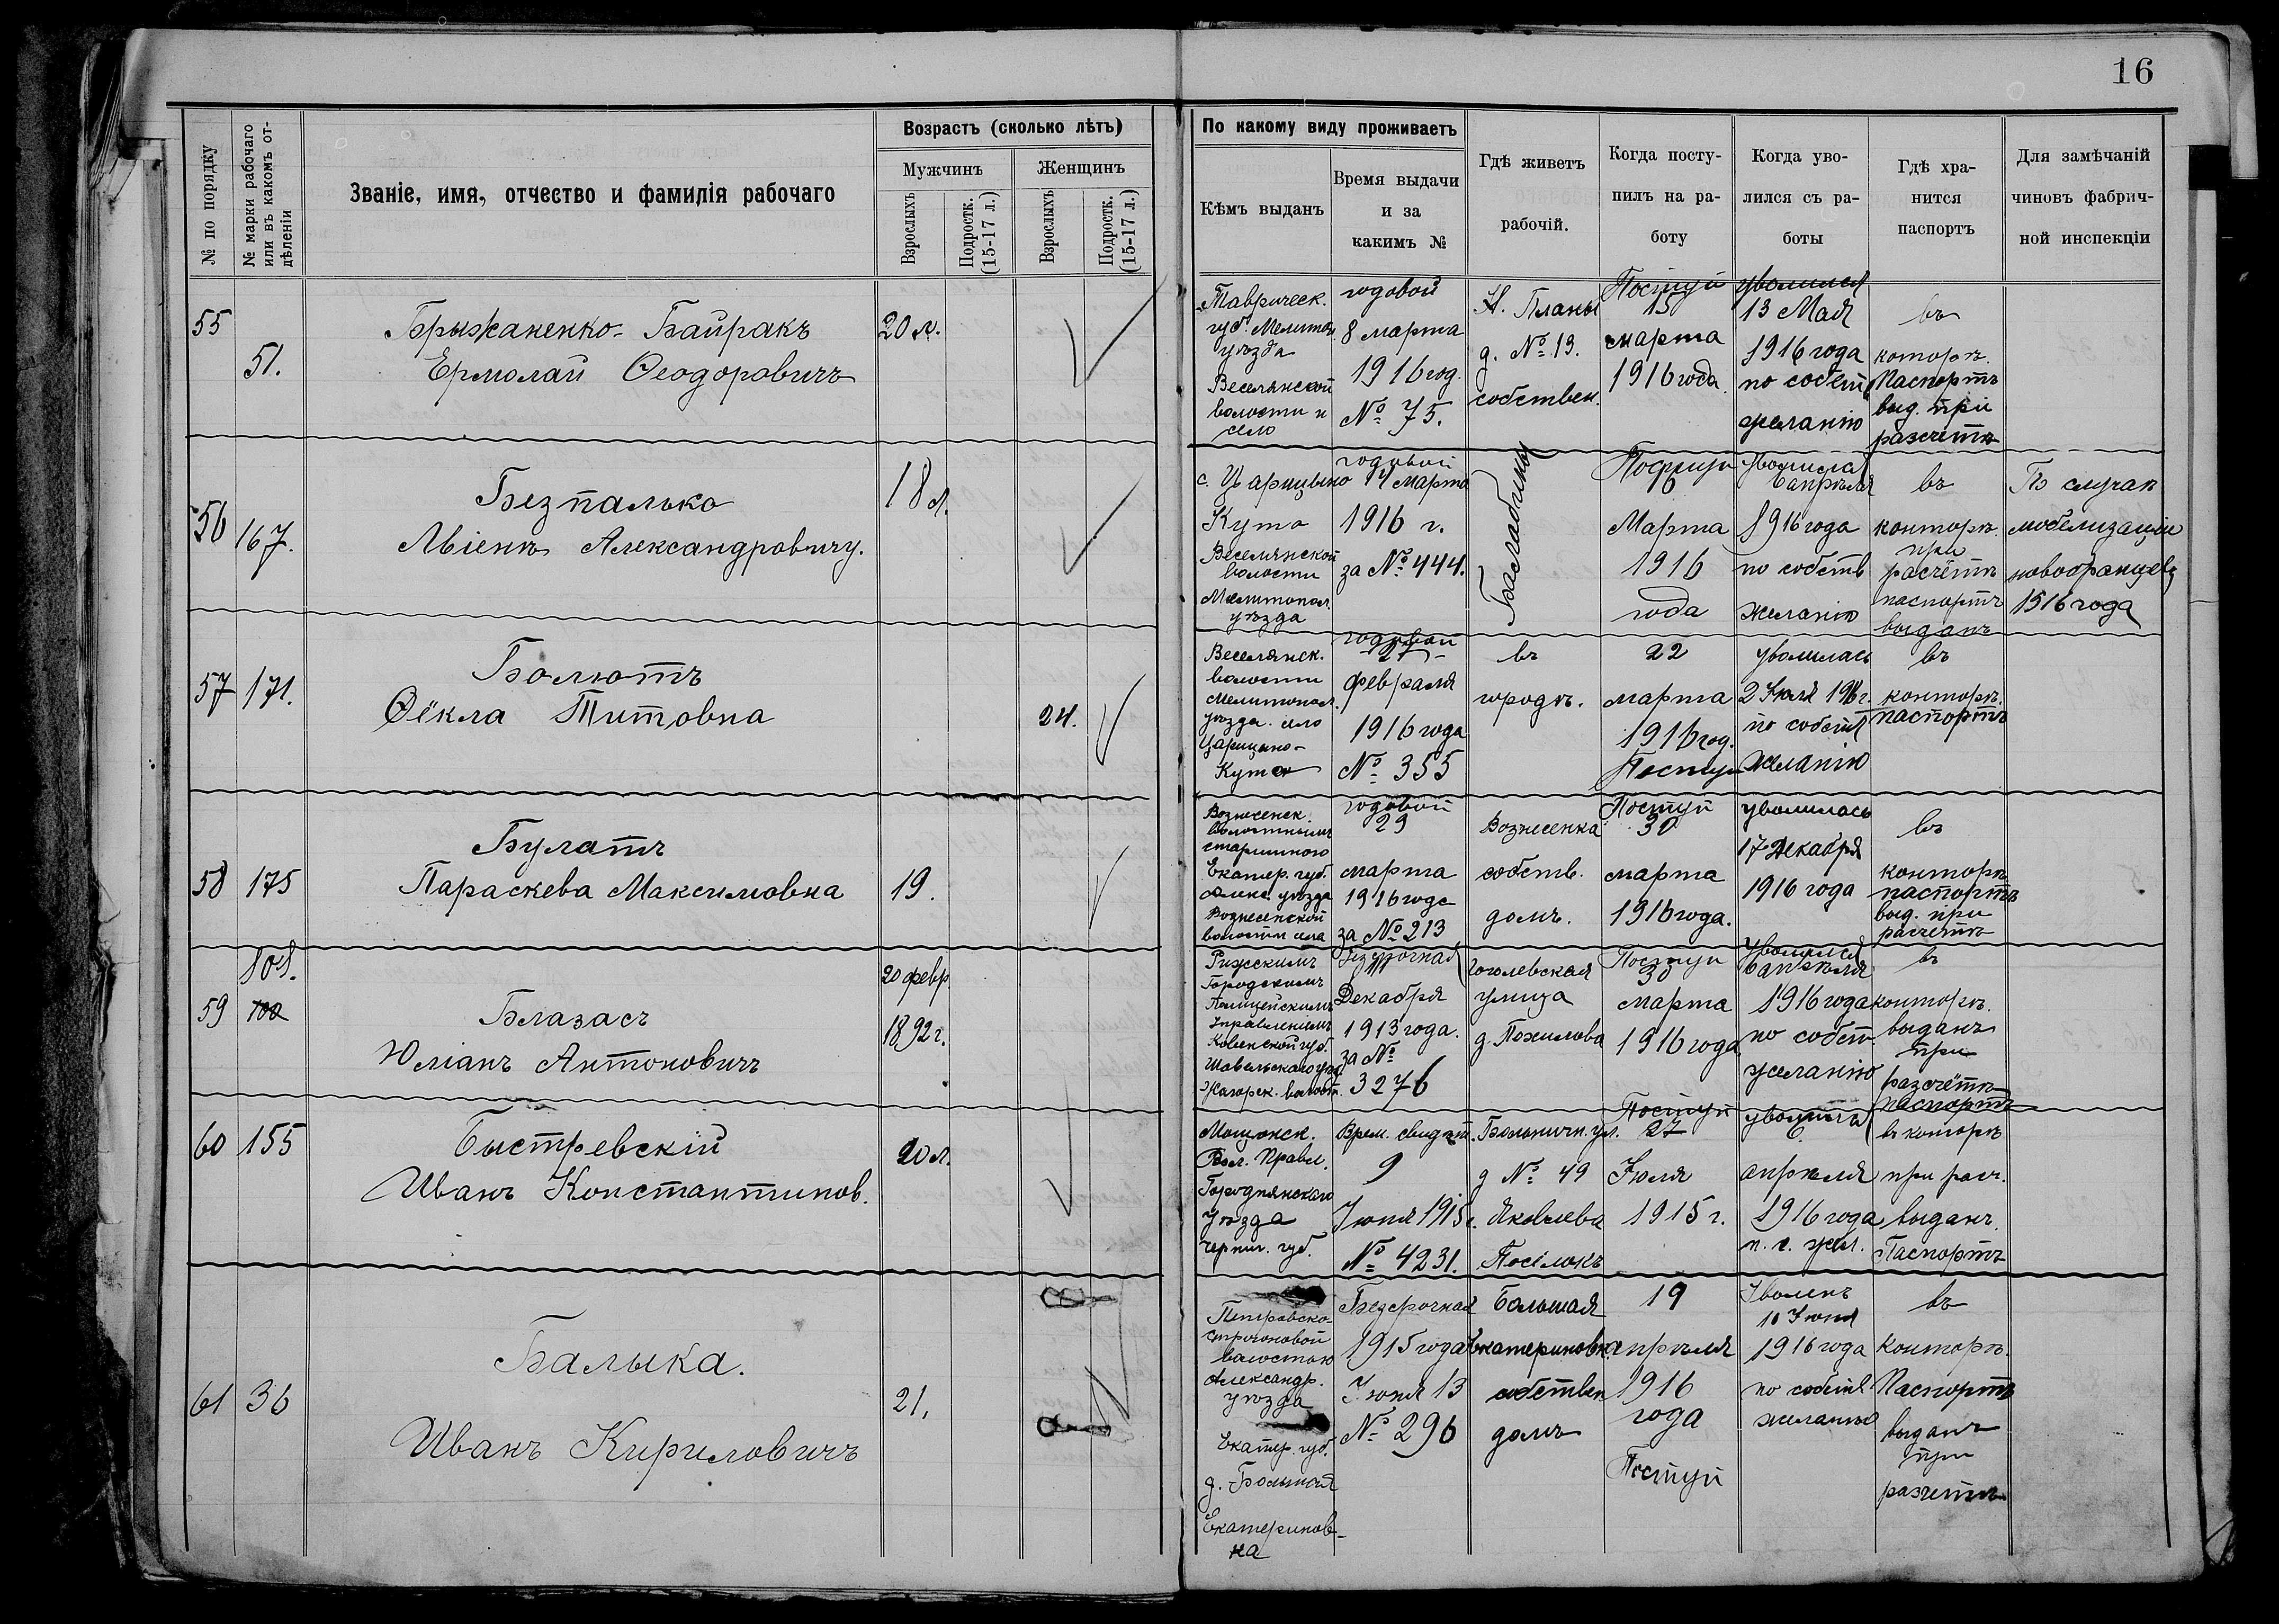 16
№ по порядку
№ марки рабочаго
или въ какомъ от-
дѣленіи
Званіе, имя, отчество и фамилія рабочаго
Возрастъ (сколько лѣтъ)
Мужчинъ
Женщинъ
Взрослыхъ
Подростк.
(15-17 л.)
Взрослыхъ
Подростк.
(15-17 л.)
По какому виду проживаетъ
Кѣмъ выданъ
Время выдачи
и за
какимъ №
Гдѣ живетъ
рабочій.
Когда посту-
пилъ на ра-
боту
Когда уво-
лился съ ра-
боты
Гдѣ хра-
нится
паспортъ
Для замѣчаній
чиновъ фабрич-
ной инспекціи
55
51.
Брыжаненко-Байракъ
Ермолай Ѳеодоровичъ
20 л.
Таврическ.
губ. Мелитоп.
уѣзда
Веселянской
волости и
село
годовой
8 марта
1916 год.
№ 75.
Н. Планы
д. № 13.
собствен.
Поступ
15
марта
1916 года
уволился
13 Мая
1916 года
по собст
желанію
въ
конторѣ.
Паспортъ
выд. при
разсчетѣ
56
167.
Безпалько
Александровичу.
18 л.
с. Царицыно
Кута
Веселянской
волости
Мелитопол.
уѣзда
годовой
14 марта
1916 г.
за № 444.
Поступ
16
Марта
1916
года
Уволился
6 апрѣля
1916 года
по собств
желанію
въ
конторѣ.
при
расчётѣ
паспортъ
выданъ
По случаю
мобелизаціи
новобранцевъ
1916 года
57
171.
Болютъ
Ѳёкла Титовна
24.
Веселянск.
волости
Мелитопол.
уѣзда. село
Царицыно-
Кута
годовой
27
февраля
1916 года
№ 355
въ
городѣ.
22
марта
1916 год.
Поступ
уволилась
2 Юля 1916 г.
по собств
желанію
въ
конторѣ.
паспортъ
58
175
Булатъ
Параскева Максимовна
19.
Вознесенск.
волостнымъ
старшиною
Екатер. губ.
Алекс. уѣзда
Вознесенской
волости села
годовой
29
марта
1916 года
за № 213
Вознесенка
собств.
домъ.
Поступ
30
марта
1916 года.
уволилась
17 Декабря
1916 года
въ
конторѣ
паспортъ
выд. при
расчетѣ
59
808.
700
Блазасъ
Юліанъ Антоновичъ
20 февр
1892 г.
Рижскимъ
Городскимъ
Полицейскимъ
Управленіемъ
Ковенской губ.
Шавельскаго уѣзд
Жагорск. волост.
Безсрочная
Декабря
1913 года.
за №
3276
Гоголевская
улица
д. Похилова
Поступ
30
марта
1916 года
Уволился
6 апрѣля
1916 года
по собст
желанію
въ
конторѣ.
выданъ
при
разсчётѣ
паспортъ
60
155
Быстревскій
Иванъ Константинов.
20 л.
Вол. Правл.
Городнянскаго
Уѣзда
Черниг. губ.
Врем. свидѣт.
9
Іюня 1915 г.
№ 4231.
Больничн. ул.
д № 49
Яковлева
Посёлокъ
Поступ
27
Іюля
1915 г.
уволился
6
апрѣля
1916 года
п. с. жел.
въ конторѣ
при расч.
выданъ
Паспортъ
61
36
Балыка.
Иванъ Кириловичъ
21,
волостью
Александр.
уѣзда
Екатер. губ.
д. Большая
Екатеринов-
ка
Безсрочная
1915 года
Іюня 13
№ 296
Большая
Екатериновка
собствен
домъ
19
апрѣля
1916
года
Поступ
Уволенъ
10 Іюня
1916 года
по собств
желанію
въ
конторѣ.
Паспортъ
выданъ
при
разчетѣ